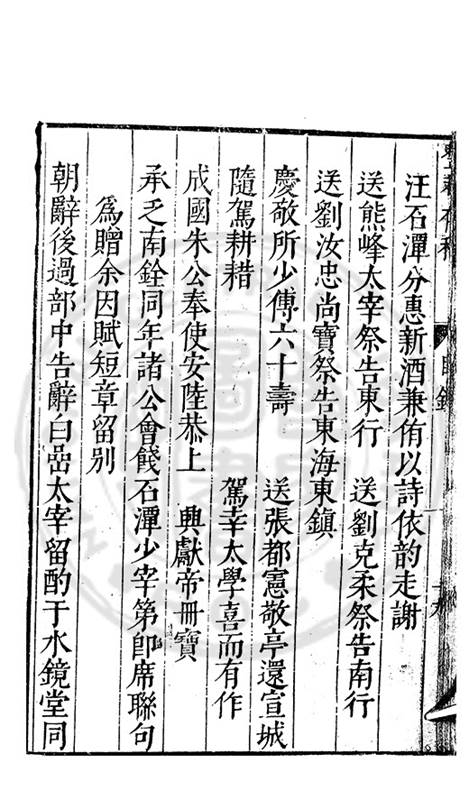 汪石潭分惠新酒兼侑以詩依韵走謝
送熊峰太宰祭告東行　送劉克柔祭告南行
送劉汝忠尚寶祭告東海東鎮
慶敬所少傅六十壽　送張都憲敬亭還宣城
隨駕耕耤　駕幸太學喜而有作
成國朱公奉使安陸恭上　興獻帝冊寶
承乏南銓同年諸公會餞石潭少宰第卽席聯句
爲贈余因賦短章留別
朝辭後過部中告辭白嵓太宰留酌于水鏡堂同